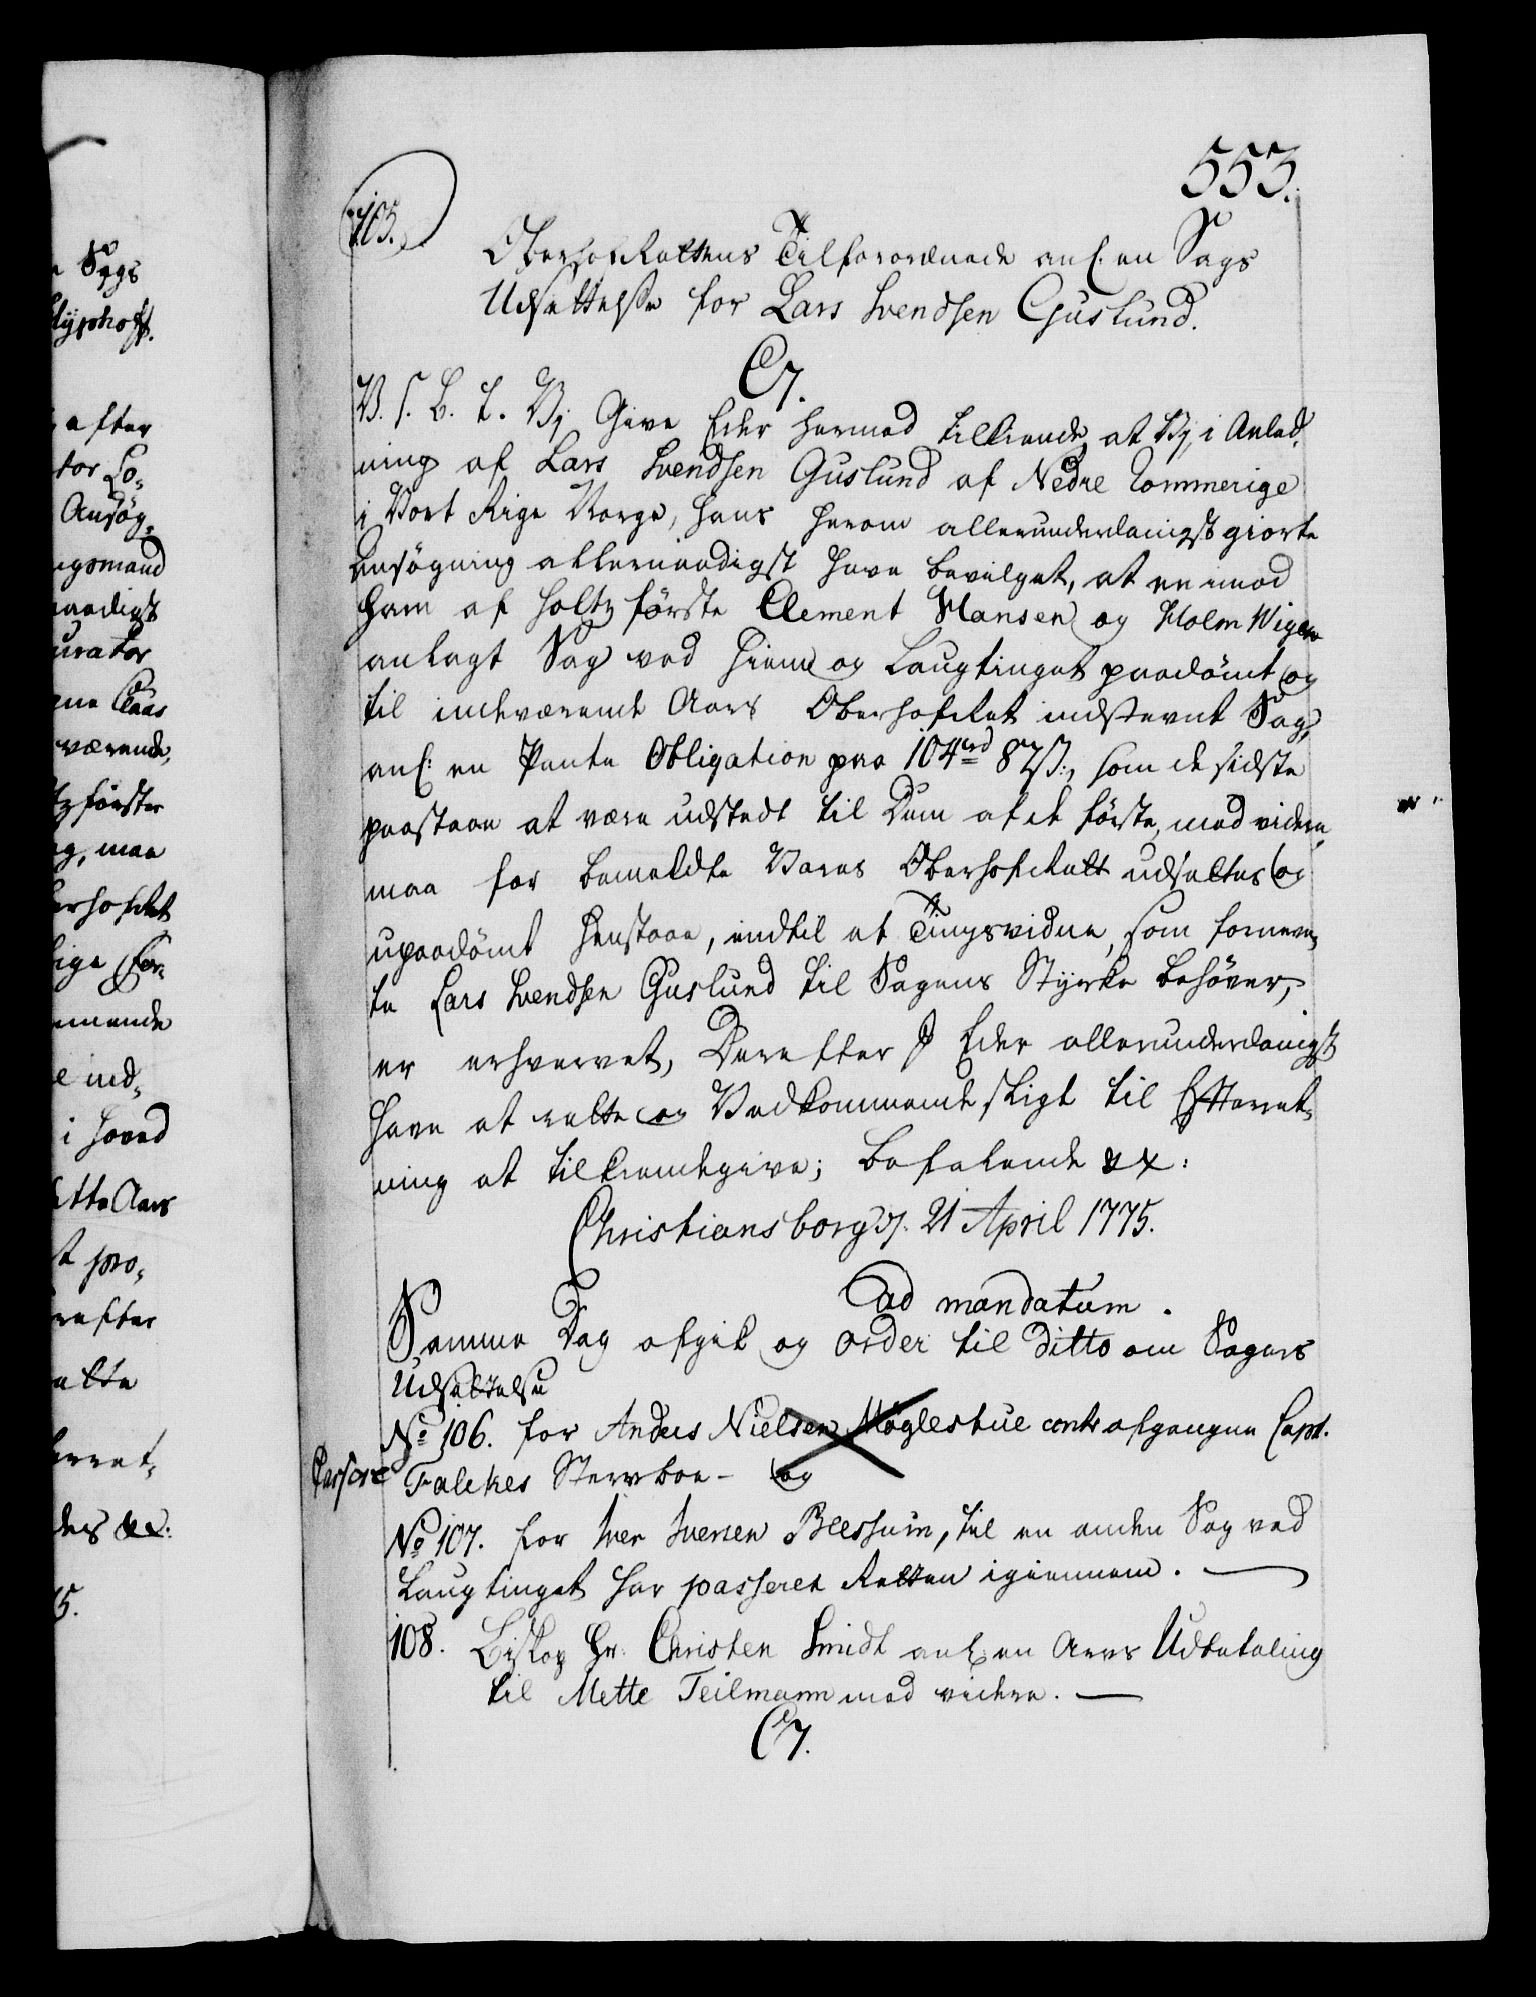 553.
105.
Oberhofrettens Tilforordnede anl: en Sags
Udsættelse for Lars Svendsen Guslund.
C7.
V. S. B. t. Vj Give Eder hermed tilkiende, at Vj, i Anled-
ning af Lars Svendsen Guslund af Nedre Rommerige
i Vort Rige Norge, hans herom allerunderdanigst giorte
Ansøgning allernaadigst have bevilget, at en imod
ham af Holtzførster Clement Hansen og Holm Wigers
anlagt Sag ved Hiem og Laugtinget paadömt og
til indeværende Aars Oberhofret indstevnt Sag,
anl: en Pante Obligation paa 104 rd 87 s:, som de sidste
paastaae at være udstedt til Dem af de første, med videre,
maa for bemeldte Vores Oberhofret udsættes og
upaadömt henstaae, indtil et Tingsvidne, som fornevn-
te Lars Svendsen Guslund til Sagens Styrke behöver,
er erhvervet, Derefter I Eder allerunderdanigst
have at rette og Vedkommende sligt til Efterret-
ning at tilkiendegive; befalende &x:
Christiansborg d. 21 April 1775.
Ad mandatum.
Samme Dag afgik og order til ditto om Sagers
Udsættelse
No 106. for Anders Nielsen Möglestue contr afgangne Capt.
Falckes Stervboe - og
No 107. for Iver Iversen Blessum, til en anden Sag ved
Laugtinget har passeret Retten igiennem.
108. Biskop Hr. Christen Smidt anl: en Arvs Udbetaling
til Mette Teilmann med videre.
C7.